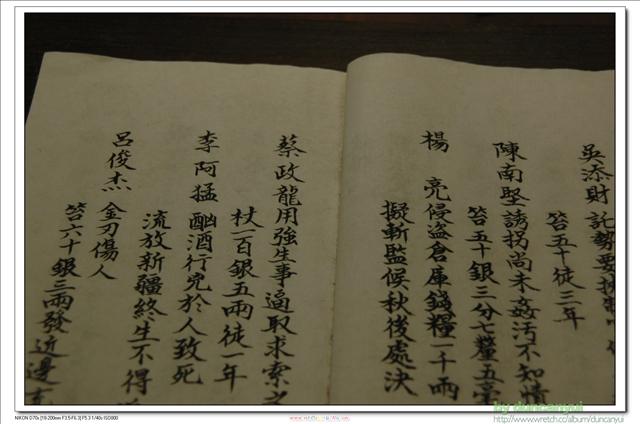 吳添財 託勢要
笞五十徒三年
陳南堅 誘拐尚未姦污不知情
笞五十銀三分七釐五毫
楊 亮 侵盜倉庫錢糧一千兩
擬斬監候秋後處決
蔡政龍 用強生事逼取求索之
杖一百銀五兩徒一年
李阿猛 酗酒行兇於人致死
流放新疆終生不得
呂俊杰 金刃傷人
笞六十銀三兩發近邊
by duncanyui
NIKON D70s [18-200mm F3.5-F5.6] F5.3 1/40s ISO800
http://www.wretch.cc/album/duncanyui